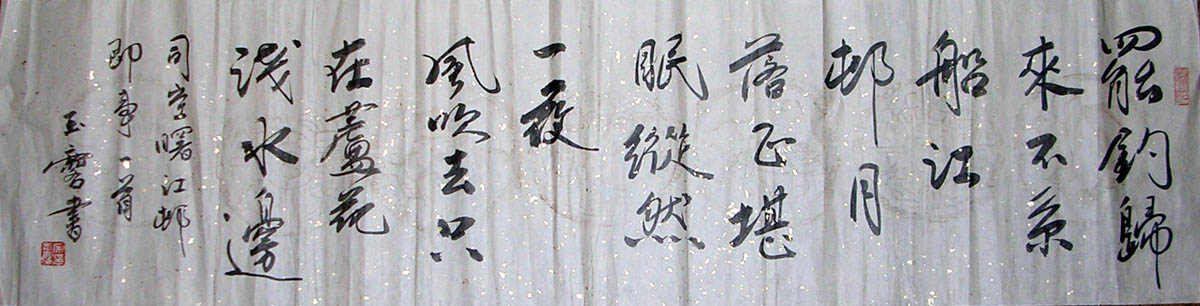 罷釣歸
來不系
船江
邨月
落正堪
眠縱然
一夜
風吹去只
在蘆花
淺水邊
司空曙江邨
即事一首
玉 書